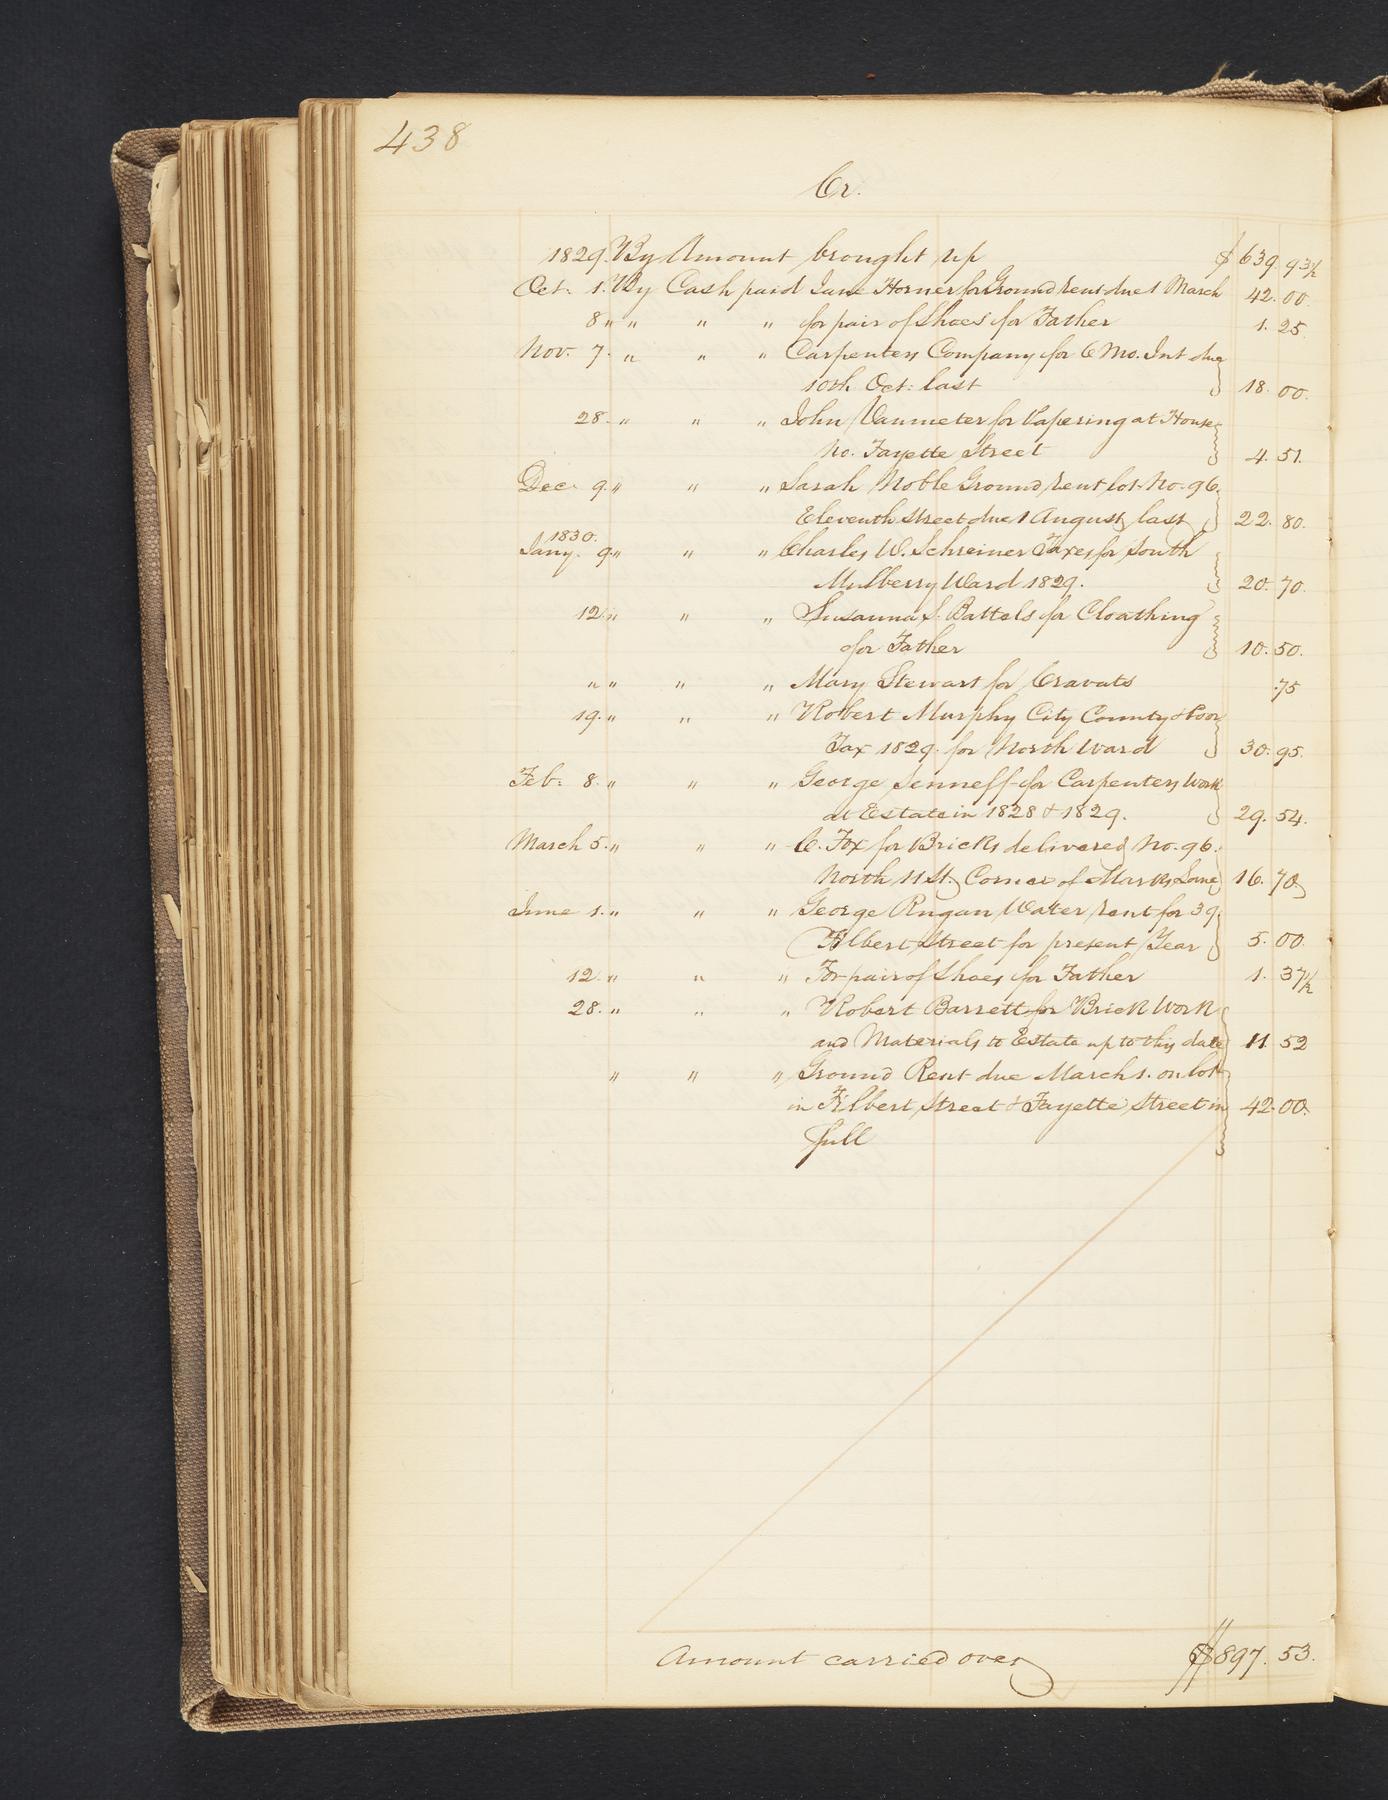 438
Cr.
1829. By Amount brought up $ 639. 93½
Oct. 1. By Cash paid Jane Horner for Ground rent due 1 March 42. 00.
8 " " " " for pair of Shoes for Father 1. 25
Nov. 7. " " " Carpenters Company for 6 Mo. Int due
10th Oct: last 18. 00.
28. " " " John Vanmeter for Papering at House
No. Fayette Street 4. 51.
Dec. 9. " " " Sarah Noble Ground rent lot No. 96.
Eleventh Street due 1 August last 22. 80.
1830.
Jany. 9 " " " Charles W. Schreiner Taxes for South
Mulberry Ward 1829. 20. 70.
12 " " " Susanna S. Battels for Cloathing
for Father 10. 50.
" " " " Mary Stewart for Cravats .75
19. " " " Robert Murphy City County & Poor
Tax 1829. for North Ward 30. 95.
Feb: 8. " " " George Senneff for Carpenters Work
at Estate in 1828 & 1829. 29. 54.
March 5. " " " C. Fox for Bricks delivered No. 96.
North 11 St. Corner of Marks Lane 16. 70
June 1. " " " George Rugan Water rent for 39
Filbert Street for present Year 5. 00.
12. " " " For pair of Shoes for Father 1. 37½
28. " " " Robert Barrett for Brick Work
and Materials to Estate up to this date 11. 52
" " " Ground Rent due March 1. on lot
in Filbert Street & Fayette Street in 42. 00.
full
Amount carried over $897. 53.